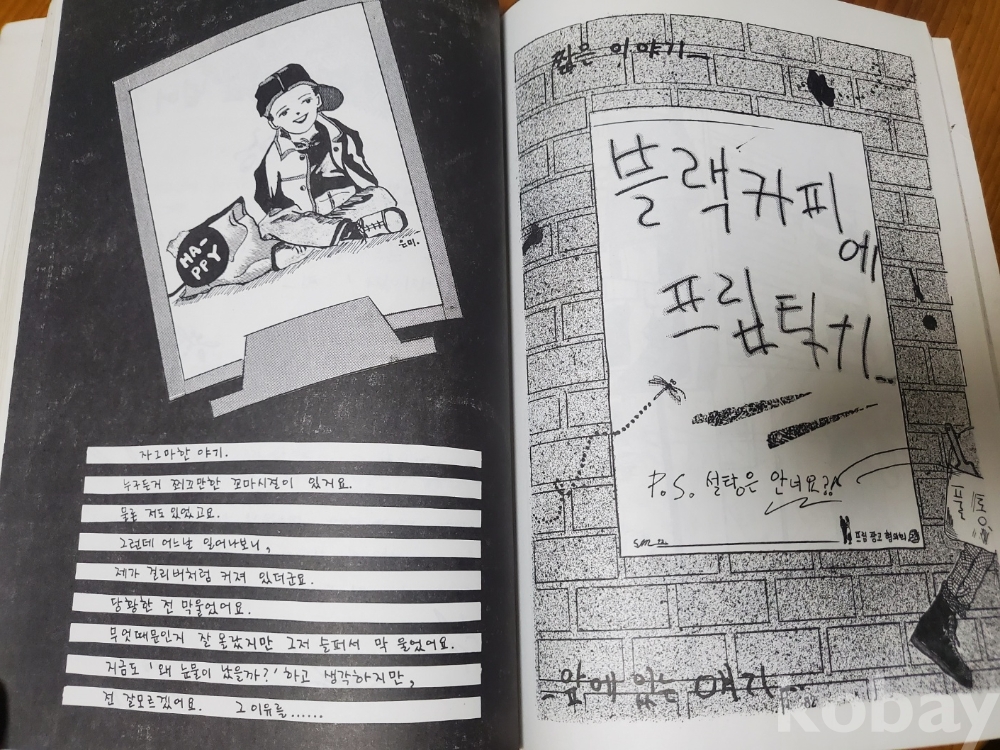 HA-
PPY
은미.
자그마한 얘기.
누구든지 쬐끄만한 꼬마시절이 있거요.
물론 저도 있었고요.
그런데 어느날 일어나보니,
제가 걸리버처럼 커져 있더군요.
당황한 전 막울었어요.
무엇때문인지 잘 몰랐지만 그저 슬퍼서 막 울었어요.
지금도 '왜 눈물이 났을까?' 하고 생각하지만,
전 잘모르겠어요. 그 이유를......
짧은 이야기...
블랙커피
에
프림틱기...
P.S. 설탕은 안녀요?
S.M
프림 광고
앞에 있는 얘기...
kobay